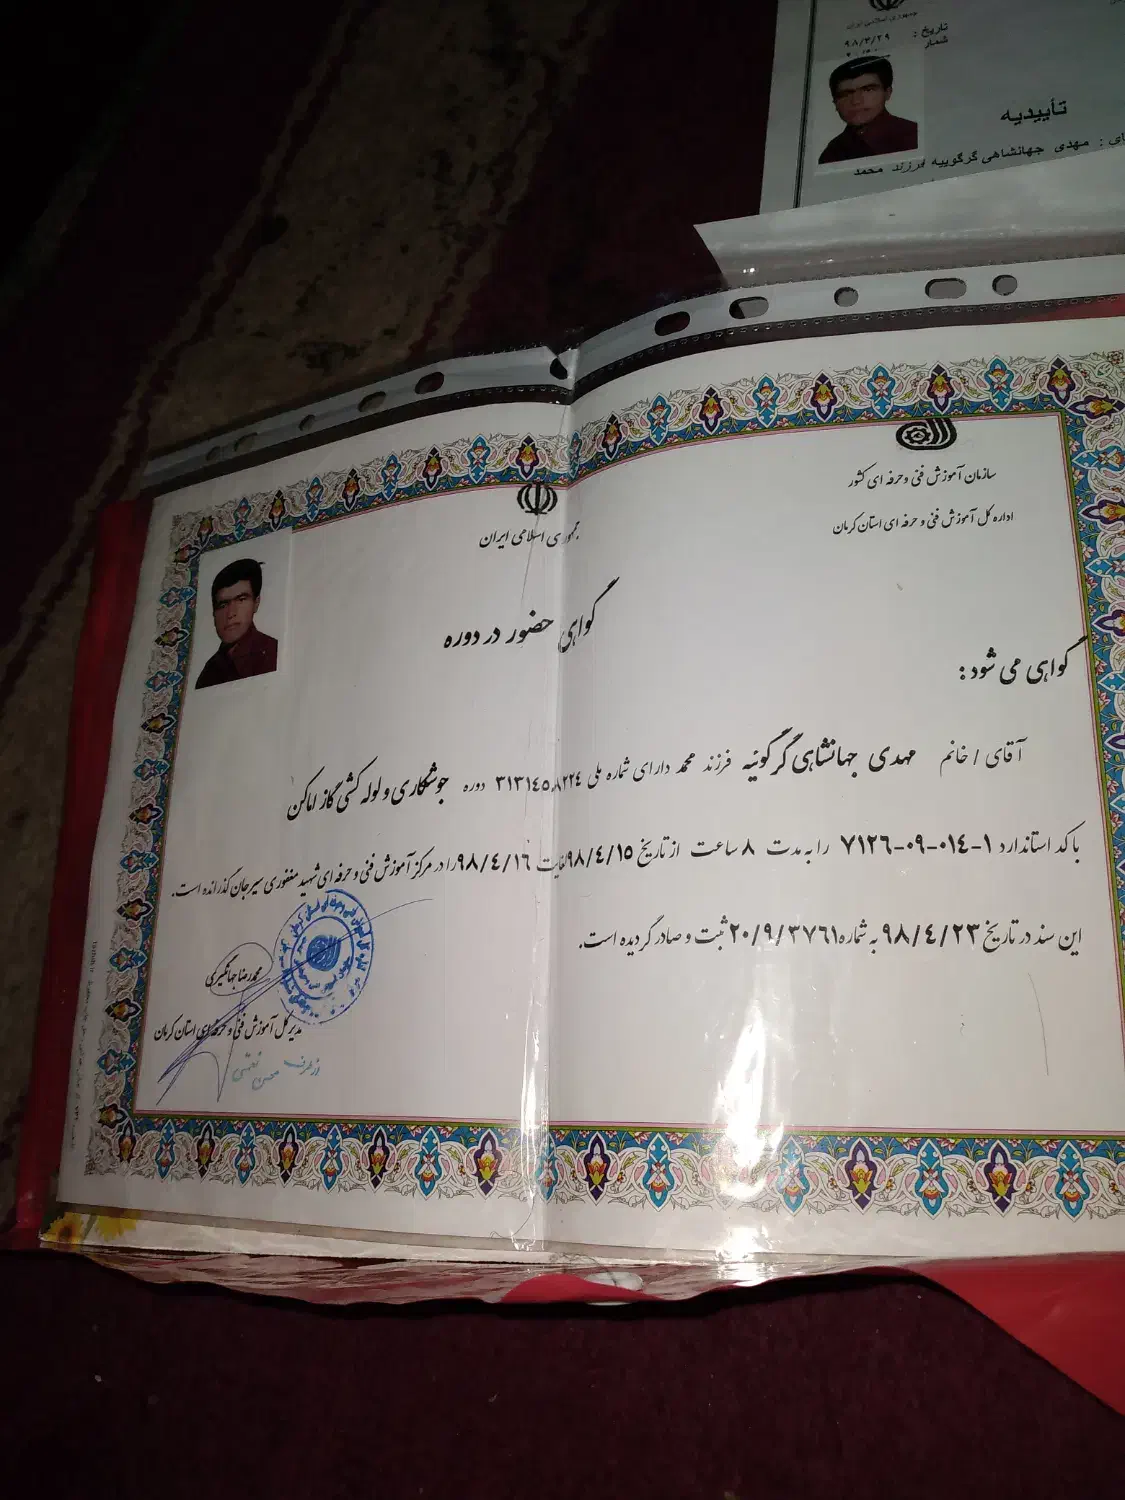 جمهوری اسلامی ایران
تاریخ : ۹۸/۳/۲۹
شمار
تأییدیه
ای : مهدی جهانشاهی گرگوییه فرزند محمد
سازمان آموزش فنی و حرفه ای کشور
اداره کل آموزش فنی و حرفه ای استان کرمان
جمهوری اسلامی ایران
گواهی حضور در دوره
گواهی می شود :
آقای / خانم مهدی جهانشاهی گرگوئیه فرزند محمد دارای شماره ملی ۳۱۳۱۴۵۰۸۲۲۴ دوره جوشکاری و لوله کشی گاز اماکن
با کد استاندارد ۱-۰۱۴-۰۹-۷۱۲۶ را به مدت ۸ ساعت از تاریخ ۹۸/۴/۱۵ لغایت ۹۸/۴/۱۶ را در مرکز آموزش فنی و حرفه ای شهید مغفوری سیرجان گذرانده است.
این سند در تاریخ ۹۸/۴/۲۳ به شماره ۲۰/۹/۳۷۶۱ ثبت و صادر گردیده است.
محمدرضا جهانگیری
مدیر کل آموزش فنی و حرفه ای استان کرمان
از طرف محسن نعمتی